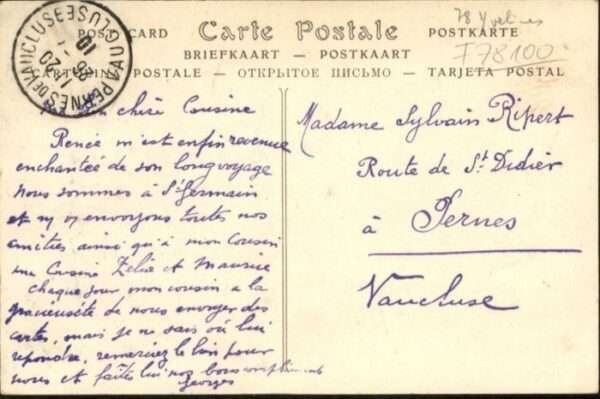 POST CARD Carte Postale POSTKARTE
BRIEFKAART — POSTKAART
POSTALE — ОТКРЫТОЕ ПИСЬМО — TARJETA POSTAL
PERNES VAUCLUSE
78 Yvelines
F 78100
chère Cousine
Renée m'est enfin revenue
enchantée de son long voyage
nous sommes à St Germain
et envoyons toutes nos
amitiés ainsi qu'à mon cousin
Cousine Zélie et Maurice
chaque jour mon cousin a la
gracieuseté de nous envoyer des
cartes, mais je ne sais où lui
répondre, remerciez le bien pour
nous et faites lui nos bons compliments
Georges
Madame Sylvain Ripert
Route de St Didier
à Pernes
Vaucluse